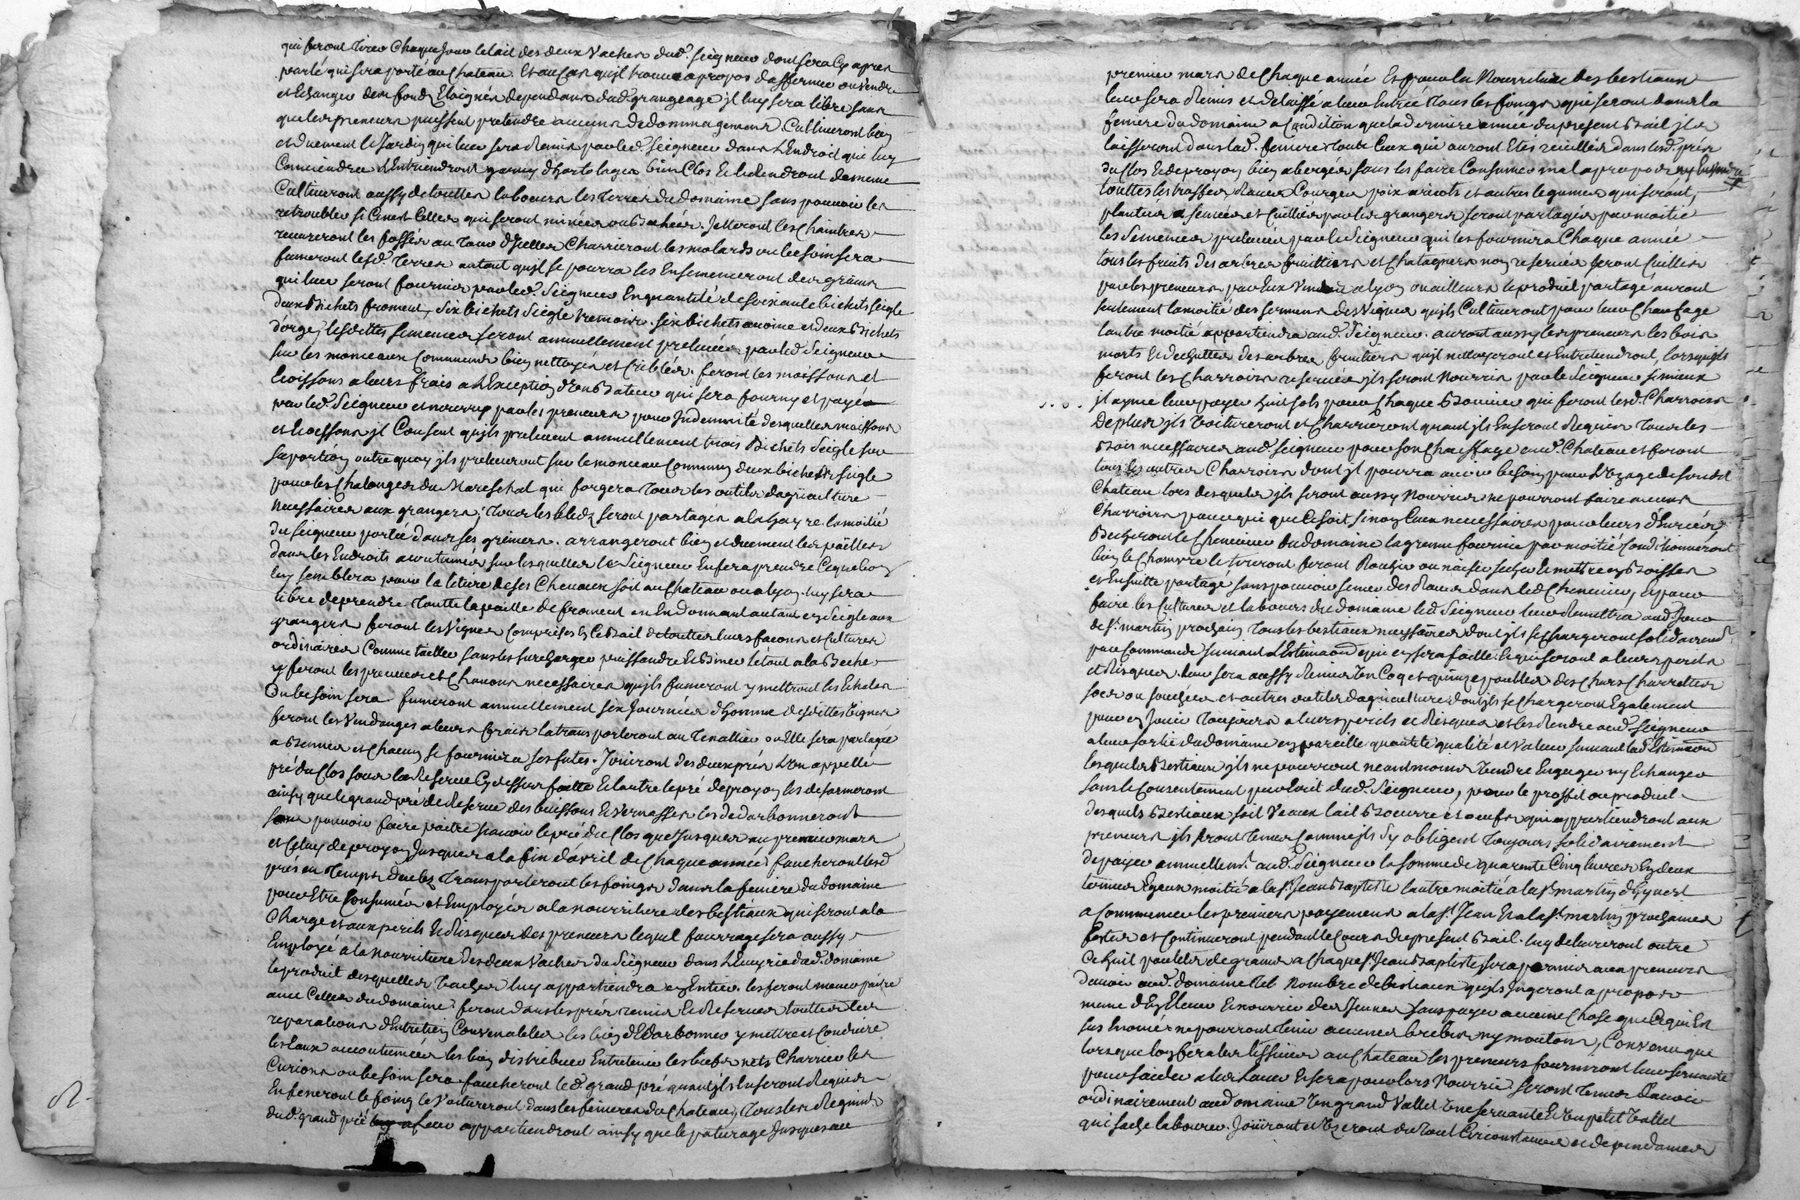 qui feront tirer chaque jour le lait des deux vaches dud. Seigneur dont sera cy apres
parlé qui sera porté au chateau. Et au cas qu'jl trouve a propos d'affermer ou vendre
et Echanger des fonds Eloignés dependans dud. grangeage jl luy sera libre sans
que les preneurs puissent pretendre aucuns dedommagemens. Cultiveront bien
et duement le Jardin qui leur sera Remis par led. Seigneur dans L'Endroit qui luy
Conviendra L'Entriendront garny d'hortolages bien Clos Et le tiendront de meme
Cultiveront aussy de touttes labours les Terres du domaine sans pouvoir les
retroubler si Ce n'est Celles qui seront minées ou Bechées. Jetteront les chaintres
recureront les fossés au tour d'Jcelles Charrieront les molards ou besoin sera
fumeront lesd. Terres autant qu'jl se pourra les Ensemenceront des grains
qui leur seront fournis par led. Seigneur En quantité de soixante bichets seigle
deux Bichets froment, six bichets siegle tremois. six bichets avoine et deux Bichets
d'orge, lesdittes semences seront annuellement prelevées par led. Seigneur
sur les monceaux Communs bien nettoyés et Criblés. feront les moissons et
Ecoissons a leurs frais a L'Exception d'un Bateur qui sera fourny et payé
par led. Seigneur et nourry par les preneurs pour Jndemnité desquelles moissons
et Ecoissons jl Consent qu'jls prelevent annuellement trois Bichets seigle sur
sa portion outre quoy jls preleveront sur le monceau Commun deux bichets seigle
pour les Chalonges du Mareschal qui forgera tous les outils d'agriculture
necessaires aux grangers; Tous les bleds seront partagés a l'ayre la moitié
du Seigneur portée dans ses greniers. arrangeront bien et duement les pailles
dans les Endroits acoutumés sur lesquelles le Seigneur En fera prendre Ce que bon
luy semblera pour la litiere de ses Chevaux soit au Chateau ou a lyon. luy sera
libre de prendre Toutte la paille de froment en En donnant autant en Seigle aux
grangers feront les Vignes Comprises En Ce Bail de touttes leurs façons et Cultures
ordinaires Comme tailler sans les surcharger puissandre Et Biner le tout a la Beche
y feront les provins et Chanons necessaires qu'jls fumeront y mettront les Echalas
Ou besoin sera fumeront annuellement six Journées d'homme desdittes Vignes
feront les Vendanges a leurs fraix la transporteront au Tenallier ou Elle sera partagée
a Bennes et chacun se fournira ses futes. Jouiront des deux prés L'un appellé
pré du Clos sous la Reserve Cy dessus faitte Et l'autre le pré de proyon les deformeront
ainsy que le grand pré de Reserve des buissons Et vernasses les dedarbonneront
sans pouvoir faire paitre scavoir le pré du Clos que Jusques au premier mars
et Celuy de proyon Jusques a la fin d'avril de Chaque année; faucheront lesd.
prés en Temps deu les Transporteront les foings dans la feniere du domaine
pour Etre Consumés et Employés a la nourriture des bestiaux qui seront a la
Charge et aux perils Et Risques des preneurs lequel fourrage sera aussy
Employé a la nourriture des deux Vaches du Seigneur dans L'Ecuyrie dud. domaine
le produit desquelles Vaches luy appartiendra en Entier. les feront mener paitre
avec Celles du domaine; feront dans les prés remis Et de Reserve touttes les
reparations d'Entretien Convenables les bien dedarbonner y mettre et Conduire
les Eaux accoutumées les bien distribuer Entretenir les biefs nets Charrier les
Curions ou besoin sera. faucheront led. grand pré quand jls En seront Requis
En feneront le foing le Voitureront dans les fenieres du Chateau, Tous les Regains
dud. grand pré a Leur appartiendront ainsy que le paturage Jusques au
premier mars de Chaque année Et pour la Nourriture des bestiaux
leur sera Remis et delaissé a leur Entrée tous les foings qui seront dans la
feniere du domaine a Condition que la derniere année du present Bail jls
laisseront dans lad. feniere tout Ceux qui auront Etés recuillis dans lesd. prés
du clos Et de proyon bien abergés sans les faire Consumer mal a propos ny En vendre
touttes les trosses, Raves Courges poix aricots et autres legumes qui seront,
plantées Semées et Cuillies par les grangers seront partagés par moitié
les Semences prelevées par le Seigneur qui les fournira Chaque année
tous les fruits des arbres fruittiers et Chataigners non reservés seront Cuillis
par les preneurs par Eux Vendus a lyon ou ailleurs le produit partagé auront
seulement la moitié des sermens des Vignes qu'jls Cultiveront pour leur Chaufage
l'autre moitié appartiendra aud. Seigneur. auront aussy les preneurs les bois
morts Et dechuttes des arbres fruitiers qu'jls nettoyeront et Entretiendront, lorsqu'jls
feront les Charrois reservés jls seront Nourris par le Seigneur si mieux
jl ayme leur payer huit sols pour Chaque Bouvier qui feront lesd. Charrois
De plus jls Voitureront et Charrieront quand jls En seront Requis Tous les
Bois necessaires aud. Seigneur pour son Chauffage aud. Chateau et feront
tous les autres Charrois dont jl pourra avoir besoin pour L'Uzage de sondit
Chateau lors desquels jls seront aussy Nourris ne pourront faire aucuns
Charrois pour qui que Ce soit sinon Ceux necessaires pour leurs denrées
Becheront le Chenevier du domaine la graine fournie par moitié Conditionneront
bien le Chanvre le tireront feront Rouhir ou naiser secher Et mettre en Boisser
et Ensuitte partagé sans pouvoir semer des Raves dans led. Chenevier, Et pour
faire les Cultures et labours du domaine led. Seigneur leur Remettra aud. Jour
de St. martin prochain Tous les bestiaux necessaires dont jls se chargeront solidairem.t
par Commande suivant L'Estimaon qui en sera faitte. Et qui seront a leurs perils
et Risques. leur sera aussy Remis un Coq et quinze poulles des Chars Charrettes
socs ou souchers et autres outils d'agriculture dont jls se Chargeront Egalement
pour en Jouir Toujours a leurs perils et Risques et les Rendre aud. Seigneur
a leur sortie du domaine en pareille quantité qualité et Valeur suivant lad. Estimaon
lesquels Bestiaux jls ne pourront neantmoins Vendre Engager ny Echanger
sans le Consentement par Ecrit dud. Seigneur, pour le proffit ou produit
desquels Bestiaux soit Veaux lait Beurre et oeufs qui appartiendront aux
preneurs jls seront tenus Comme jls s'y obligent Toujours solidairement
de payer annuellem.t aud. Seigneur la somme de quarente Cinq livres En deux
termes Egaux moitié a la St. Jean Baptiste l'autre moitié a la St. martin d'hyvert
a Commencer les premiers payemens a la St. Jean Et a la St. martin prochaines
festes et Continueront pendant le Cours du present Bail. luy delivreront outre
Ce huit poulets de grains a Chaque St. Jean Baptiste, sera permis aux preneurs
d'avoir aud. domaine tel Nombre de bestiaux qu'jls Jugeront a propos
meme d'En Elever Et nourrir des Jeunes sans payer aucune Chose que Ce qui Est
sus Enoncé ne pourront tenir aucunes brebis ny moutons, Convenu que
lorsque l'on fera les lessives au Chateau les preneurs fourniront leur servante
pour aider a les laver Et sera pour lors Nourrie seront Tenus d'avoir
ordinairement aud. domaine Un grand Vallet Une servante Et Un petit Vallet
qui sache labourer. Jouiront et Uzeront du tout Circonstances et dependances